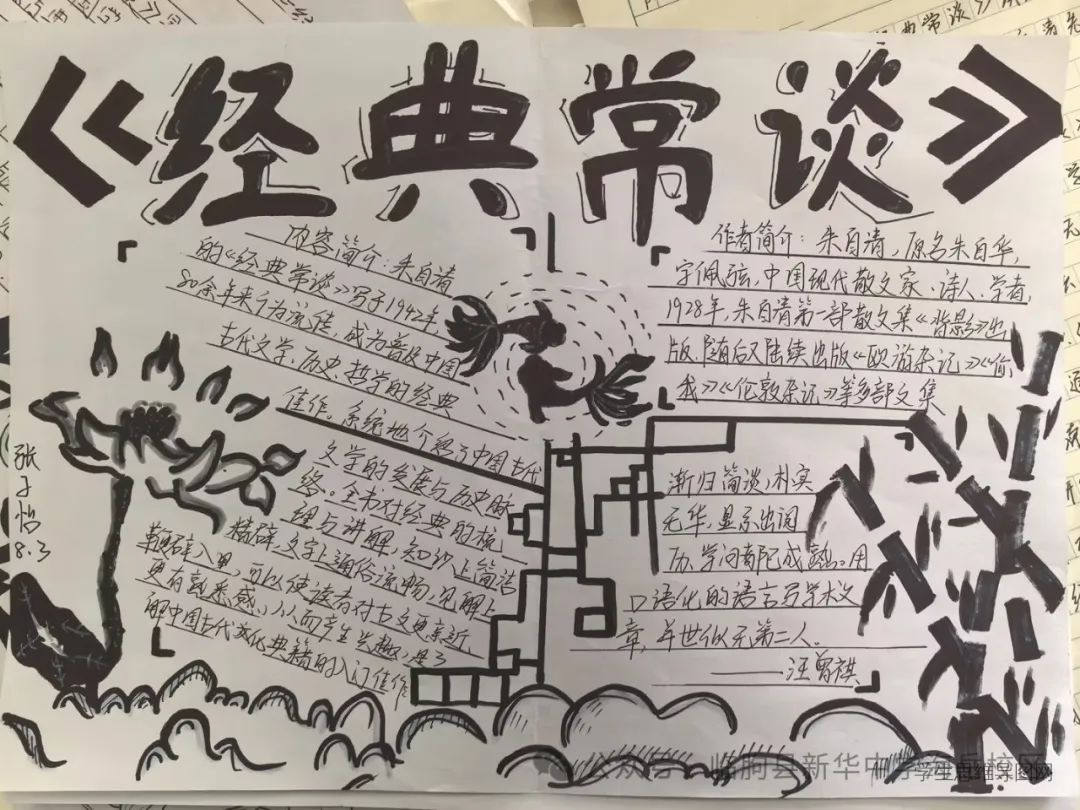 《经典常谈》
内容简介：朱自清
的《经典常谈》写于1942年
80余年来广为流传，成为普及中国
古代文学、历史、哲学的经典
佳作。系统地介绍了中国古代
文学的发展与历史脉
络。全书对经典的梳
理与讲解，知识上简洁
精辟，文字上通俗流畅，见解上
鞭辟入里，可以使读者对古文更亲近
更有熟悉感，从而产生兴趣，是了
解中国古代文化典籍的入门佳作
张子怡
8.3
作者简介：朱自清，原名朱自华，
字佩弦，中国现代散文家、诗人、学者，
1928年，朱自清第一部散文集《背影》出
版，随后又陆续出版《欧游杂记》《你
我》《伦敦杂记》等多部文集
渐归简淡，朴实
无华，显示出阅
历、学问都已成熟。用
口语化的语言写学术文
章，并世似无第二人。
——汪曾祺
公众号 临朐县新华中学
学生思维导图网